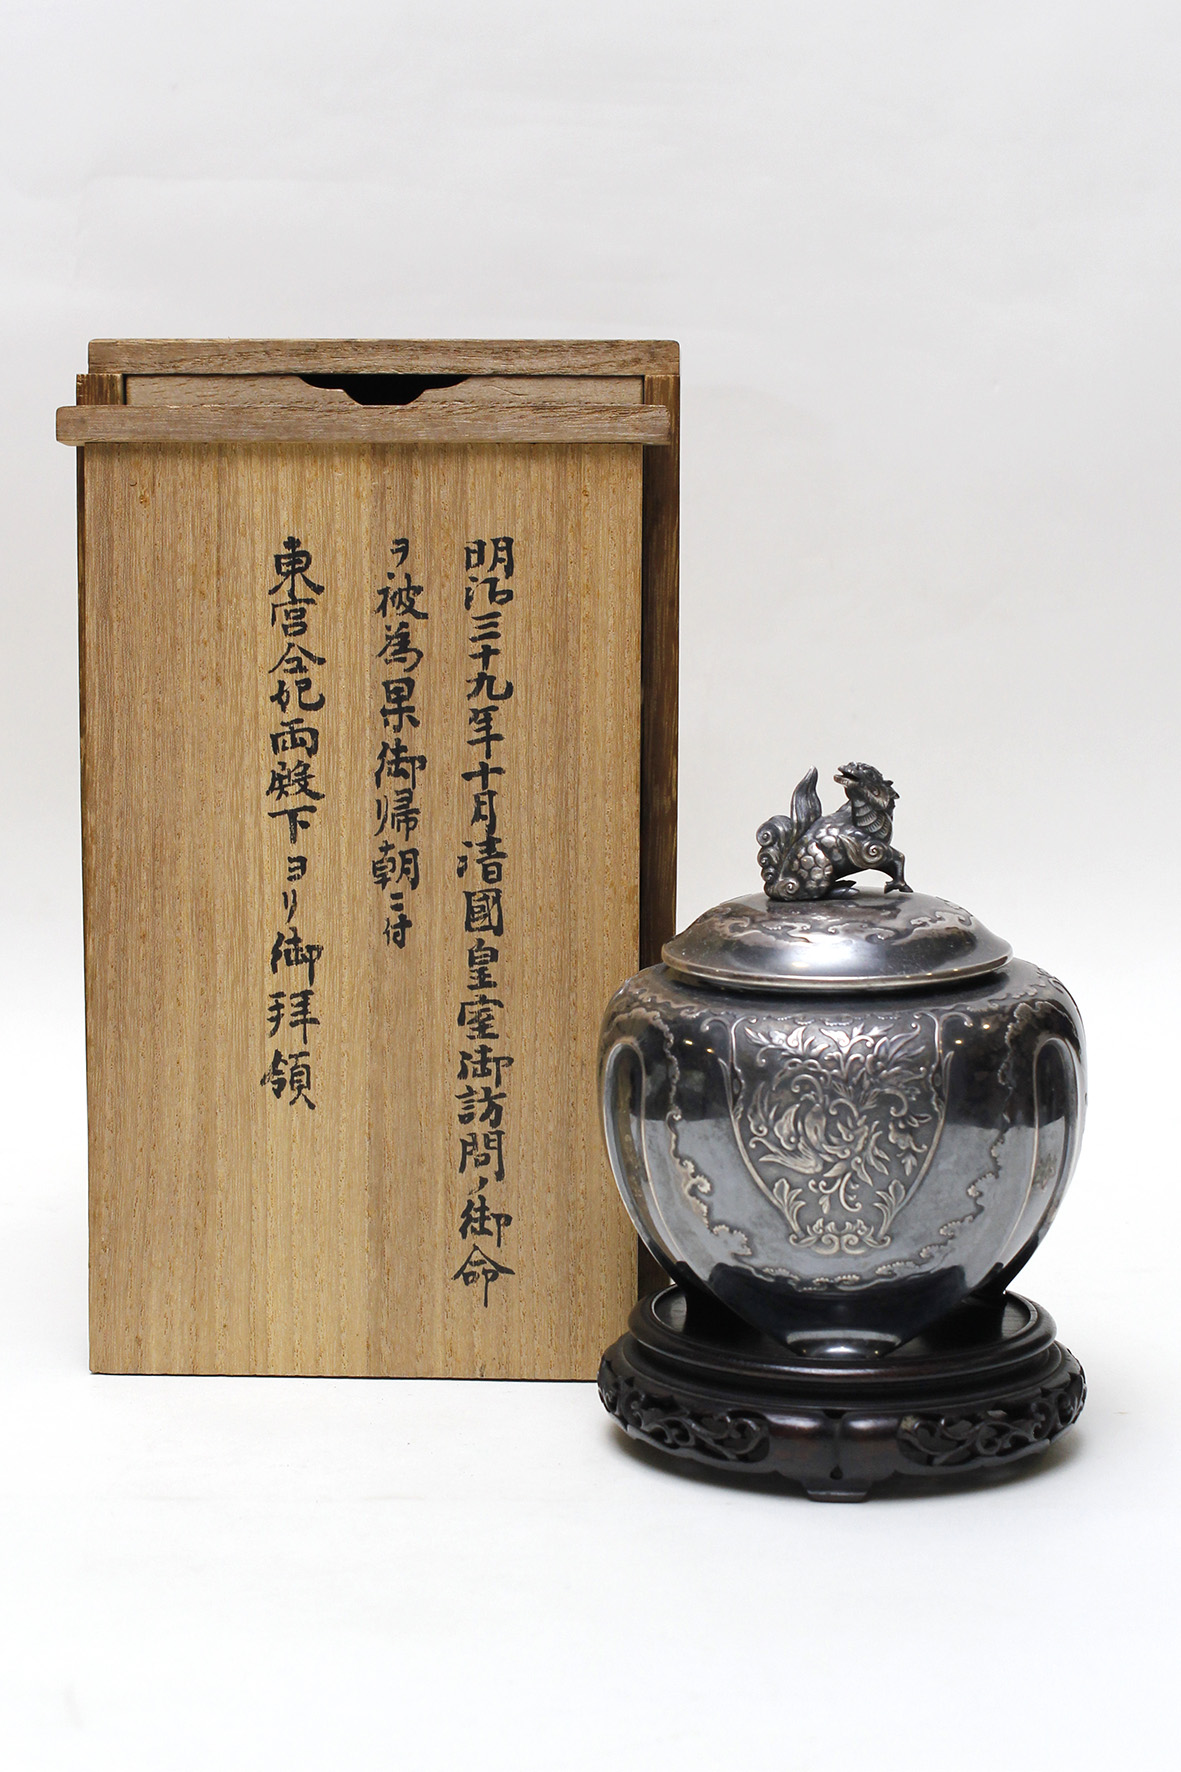 明治三十九年十月清國皇室御訪問ノ御命
ヲ被為果御帰朝ニ付
東宮仝妃両殿下ヨリ御拝領